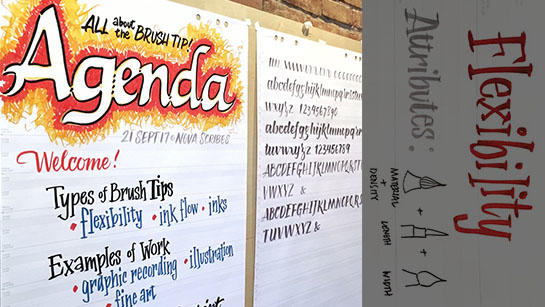 ALL about the BRUSH TIP!
Agenda
21 SEPT 17 @ NOVA SCRIBES
Welcome!
Types of Brush Tips
• flexibility • ink flow • inks
Examples of Work
• graphic recording • illustration
• fine art
abcdefghijklmnopqrstu
wxyz 1234567890
abcdefghijklmnopqr
tuvwxyz 123456789
ABCDEFGHIJKLMNOPQRS
VWXYZ &
ABCDEFGHIJKLMNOPQRS
TUVWXYZ &
Flexibility
Attributes:
MATERIAL + DENSITY
+ LENGTH
+ WIDTH